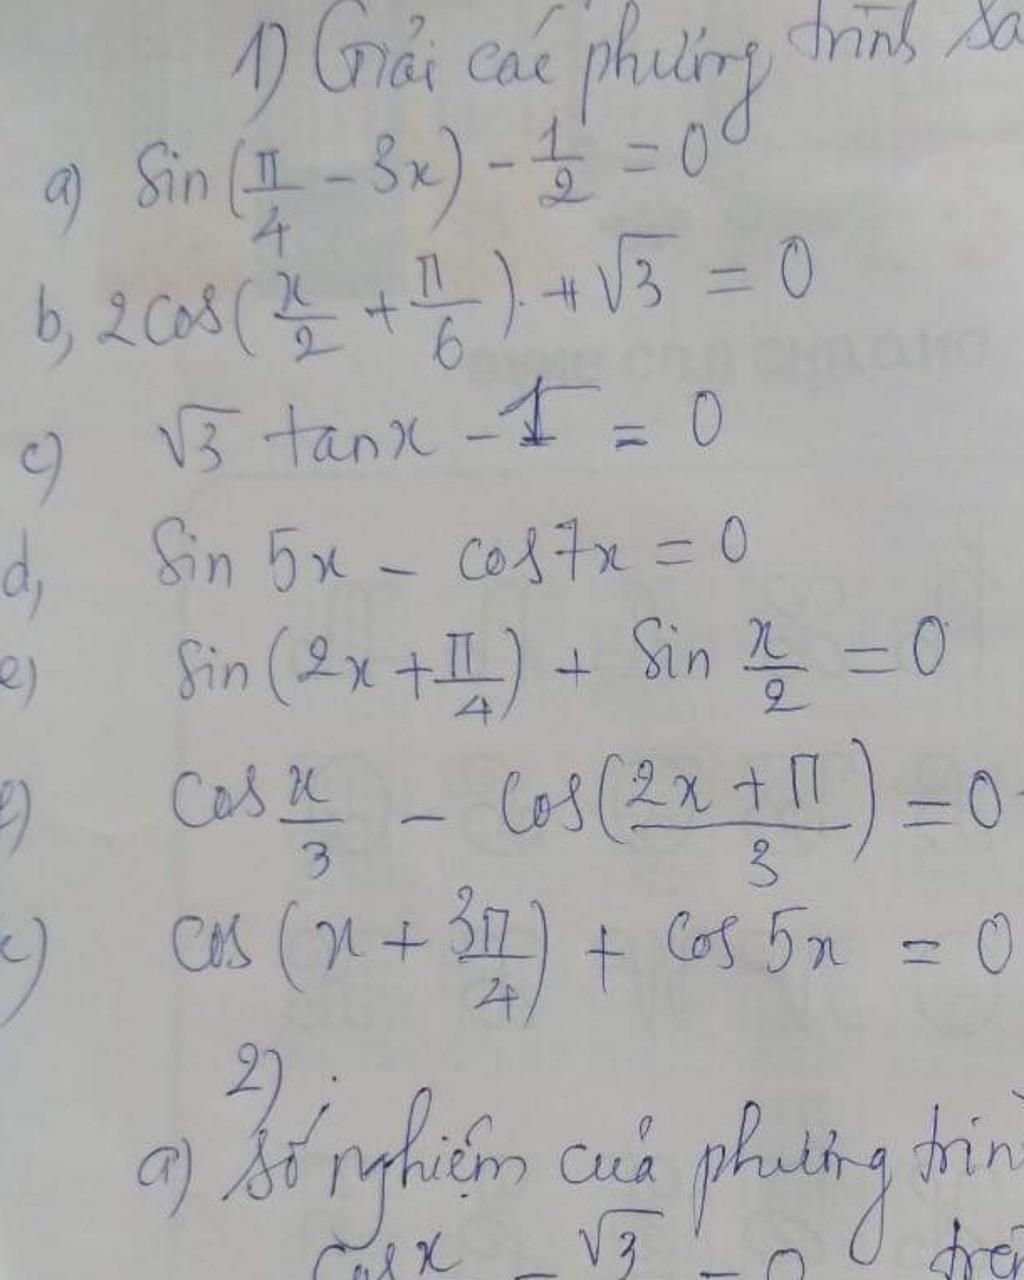 1) Giải các phương trình sa
a) sin(π/4 - 3x) - 1/2 = 0
b, 2cos(x/2 + π/6) + √3 = 0
c) √3 tanx - 1 = 0
d, sin 5x - cos7x = 0
e) sin(2x + π/4) + sin x/2 = 0
f) cos x/3 - cos((2x + π)/3) = 0
cos(x + 3π/4) + cos 5x = 0
2)
a) Số nghiệm của phương trìn
x √3 0